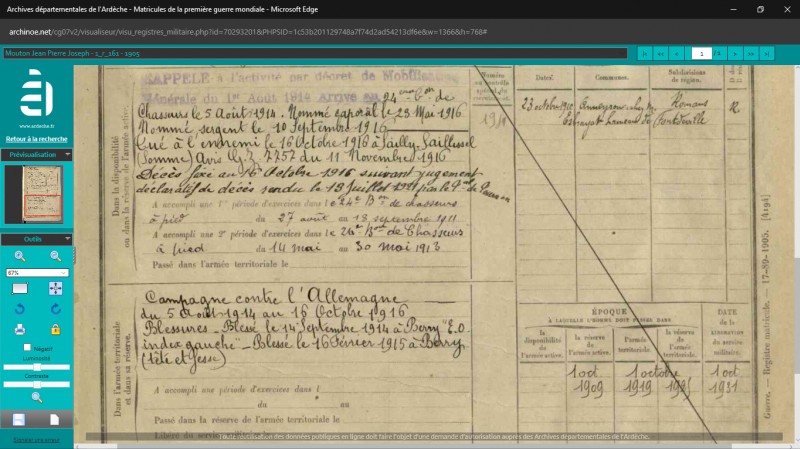 Archives départementales de l'Ardèche - Matricules de la première guerre mondiale - Microsoft Edge
archinoe.net/cg07v2/visualiseur/visu_registres_militaire.php?id=70293201&PHPSID=1c53b201129740a7f74d2ad54213df6e&w=1366&h=768#
Mouton Jean Pierre Joseph - 1_r_161 - 1905
1 / 2
www.ardeche.fr
Retour à la recherche
Prévisualisation
Outils
67%
Négatif
Luminosité
Contraste
Signaler une erreur
Dans la disponibilité
ou dans la réserve de l'armée active.
RAPPELÉ à l'activité par décret de Mobilisation
Générale du 1er Août 1914 Arrivé au 24ème Bon de
Chasseurs le 5 Août 1914. Nommé caporal le 23 Mai 1916
Nommé sergent le 10 Septembre 1916
Tué à l'ennemi le 16 Octobre 1916 à Sailly Saillisel
(Somme) Avis du 11 Novembre 1916
Décès fixé au 16 Octobre 1916 suivant jugement
déclaratif de décès rendu le 18 Juillet 1921 par le
A accompli une 1re période d'exercices dans le 24e Bon de chasseurs
à pied du 27 août au 13 septembre 1911
A accompli une 2e période d'exercices dans le 26e Bon de Chasseurs
à pied du 14 mai au 30 mai 1913
Passé dans l'armée territoriale le
Dans l'armée territoriale
et dans sa réserve.
Campagne contre l'Allemagne
du 5 Août 1914 au 16 Octobre 1916
Blessures - Blessé le 14 Septembre 1914 à Berry "E.O.
index gauche" - Blessé le 16 Février 1915 à Berry
(tête et fesse)
A accompli une période d'exercices dans l
du au
Passé dans la réserve de l'armée territoriale le
Libéré du service militaire le
Dates.
Communes.
Subdivisions
de région.
23 octobre
Romans
ÉPOQUE
À LAQUELLE L'HOMME DOIT PASSER DANS
DATE
de la
LIBÉRATION
du service
militaire.
la
disponibilité
de
l'armée active.
la réserve
de
l'armée active.
l'armée
territoriale.
la réserve
de
l'armée
territoriale.
1 oct
1909
1 octobre
1919
1 oct
1931
Guerre. — Registre matricule. — 17-89-1905. [4194]
Toute réutilisation des données publiques en ligne doit faire l'objet d'une demande d'autorisation auprès des Archives départementales de l'Ardèche.